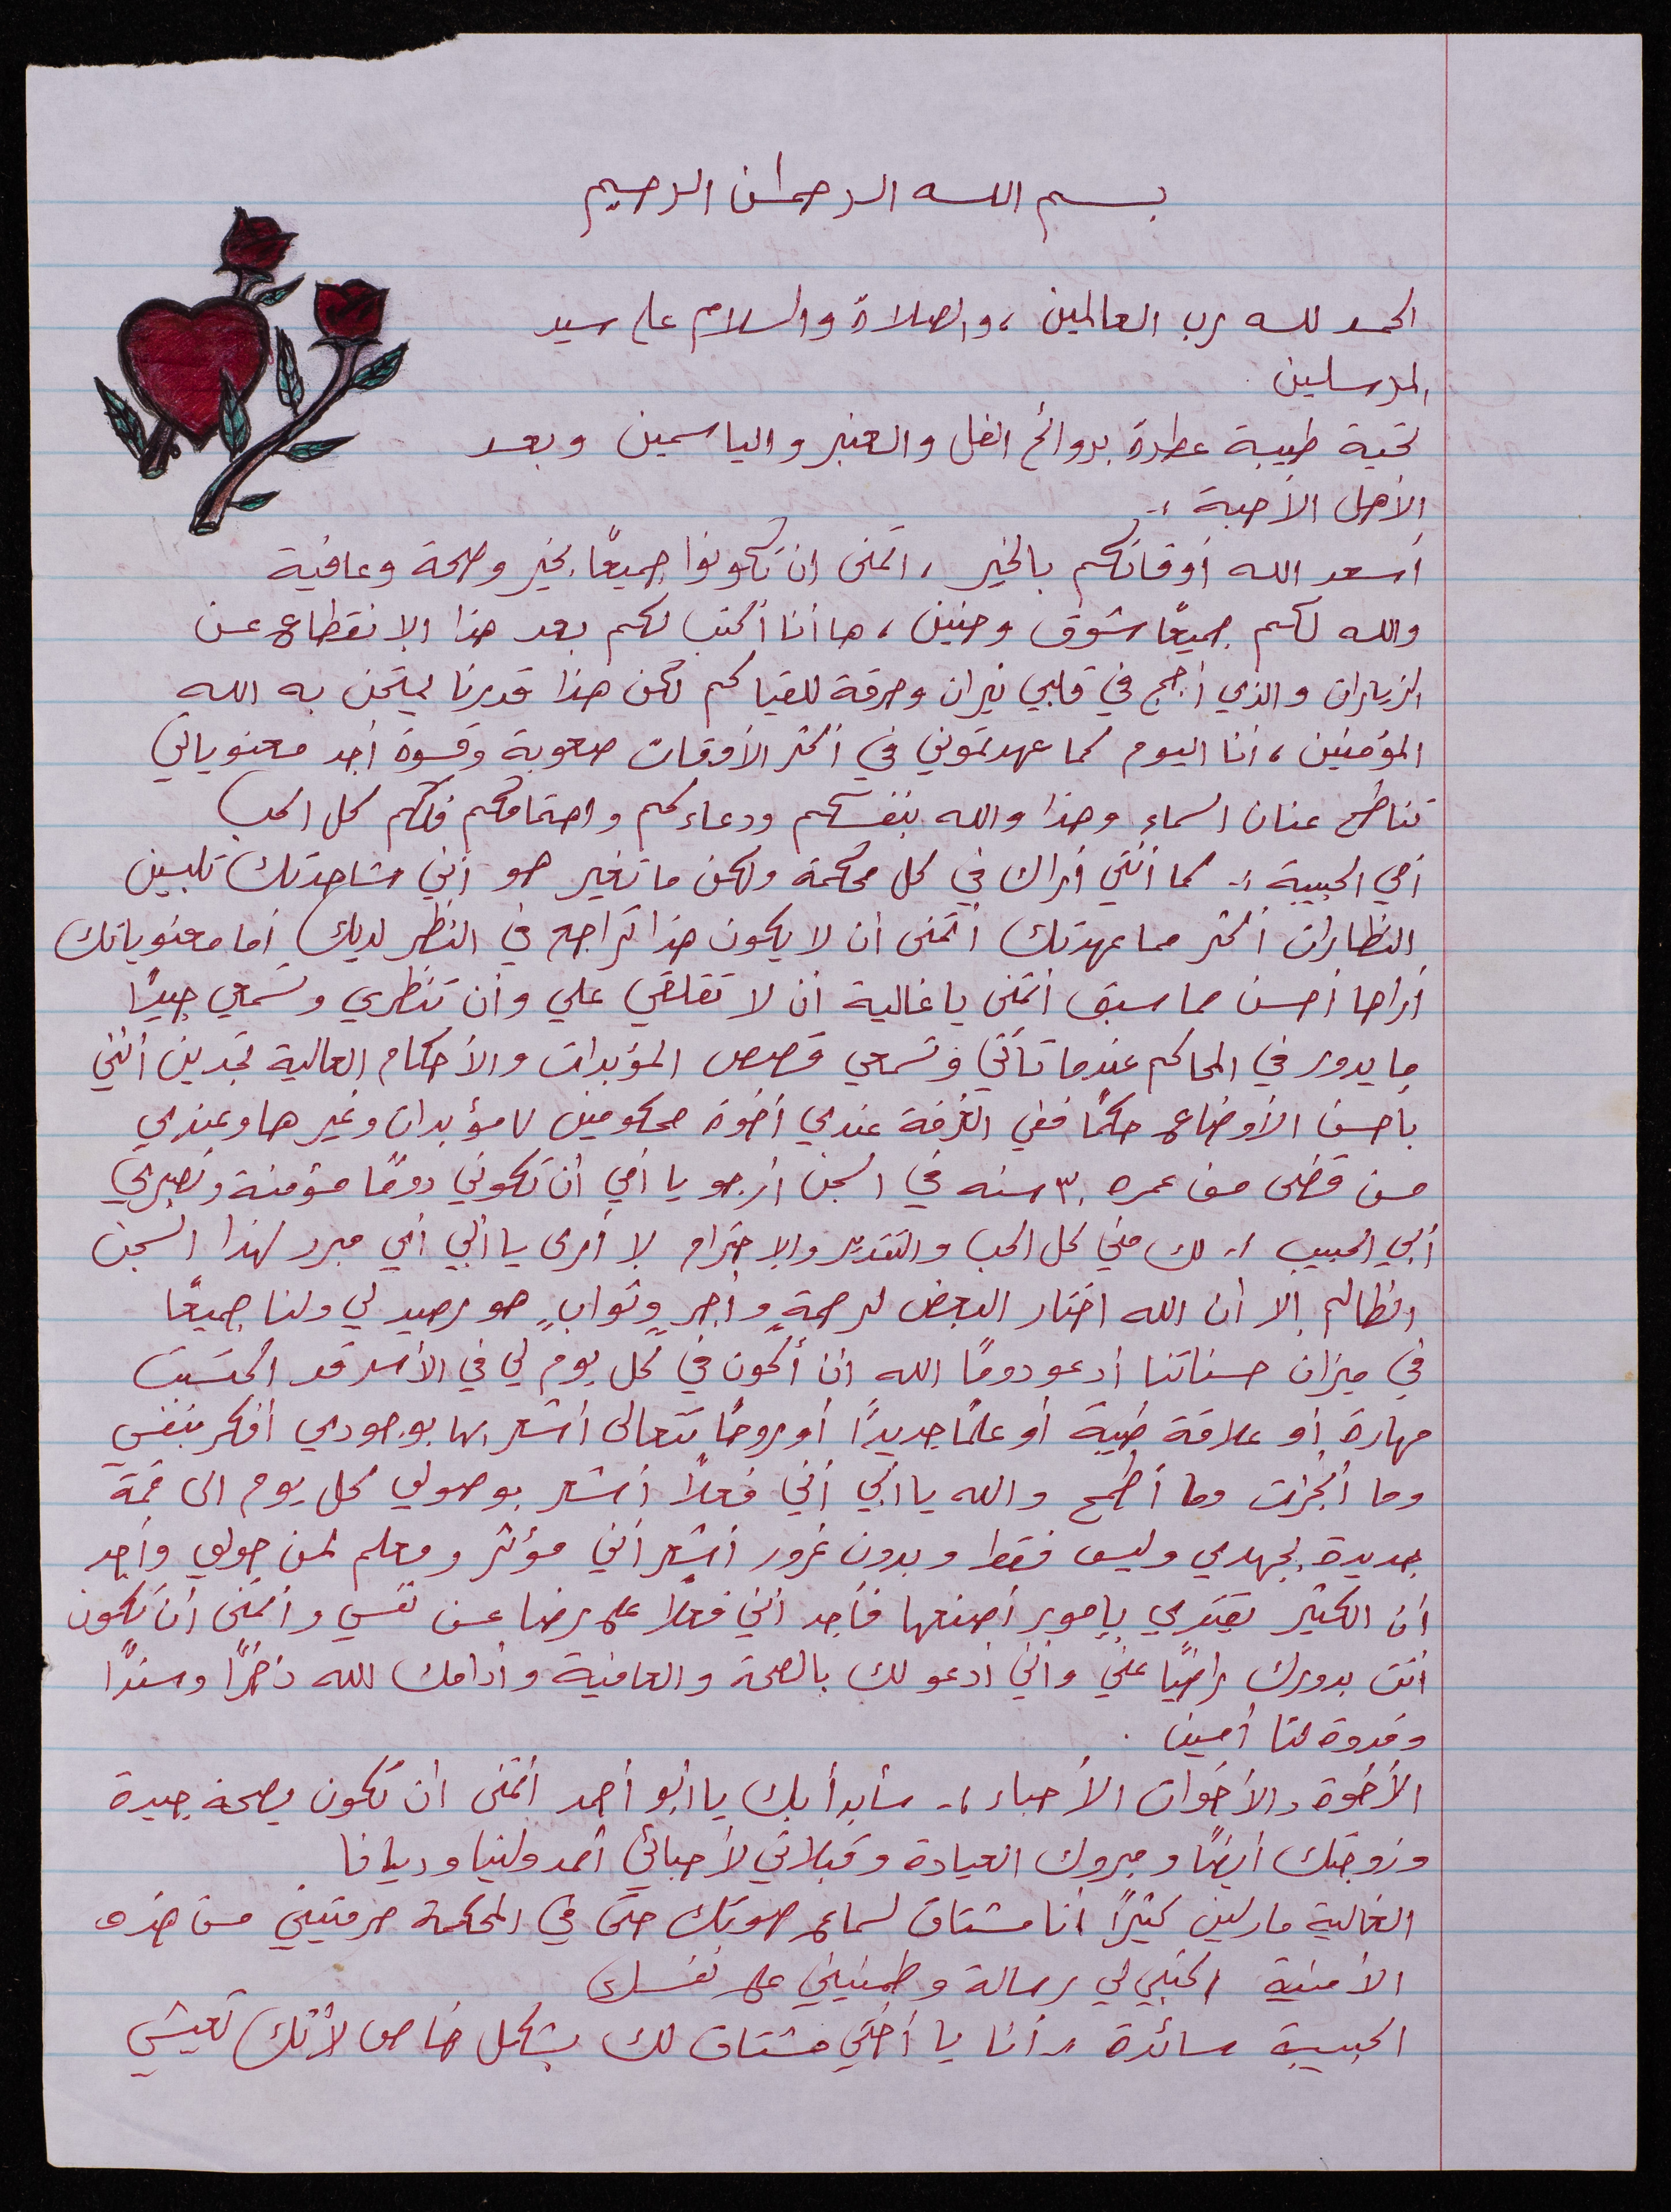 بسم الله الرحمان الرحيم
الحمد لله رب العالمين ، والصلاة والسلام على سيد
المرسلين
تحية طيبة عطرة بروائح الفل والعنبر والياسمين وبعد
الأهل الأحبة :-
أسعد الله أوقاتكم بالخير ، اتمنى ان تكونوا جميعًا بخير وصحة وعافية
والله لكم جميعًا شوق وحنين ، ها أنا أكتب لكم بعد هذا الإنقطاع عن
الزيارات والذي أجج في قلبي نيران وحرقة للقياكم لكن هذا قدرنا ليمتحن به الله
المؤمنين ، أنا اليوم كما عهدتموني في أكثر الأوقات صعوبة وقسوة أجد معنوياتي
تناطح عنان السماء وهذا والله بنفسكم ودعاءكم واهتمامكم فلكم كل الحب
أمي الحبيبة :- كما أنني أراك في كل محكمة ولكن ما تغير هو أنني شاهدتك تلبسين
النظارات أكثر مما عهدتك أتمنى أن لا يكون هذا تراجع في النظر لديك أما معنوياتك
أراها أحسن مما سبق أتمنى يا غالية أن لا تقلقي علي وأن تنظري وتسمعي جيدًا
ما يدور في المحاكم عندما تأتي وتسمعي قصص المؤبدات والأحكام العالية تجدين أنني
بأحسن الأوضاع حكمًا ففي الغرفة عندي أخوة محكومين ٧ مؤبدات وغيرها وعندي
من قضى من عمره ٣٠ سنه في السجن أرجو يا أمي أن تكوني دومًا مؤمنة وتصبري
أبي الحبيب :- لك مني كل الحب والتقدير والإحترام لا أرى يا أبي أي مبرر لهذا السجن
الظالم إلا أن الله اختار البعض لرحمةٍ وأجرٍ وثوابٍ هو رصيد لي ولنا جميعًا
في ميزان حسناتنا أدعو دومًا الله أن أكون في كل يوم لي في الأسر قد اكتسبت
مهارة أو علاقة طيبة أو علمًا جديدًا أو روحًا تتعالى أشعر بها بوجودي أفكر بنفسي
وما أنجزت وما أطمح والله يا أبي أني فعلًا أشعر بوصولي كل يوم الى قمة
جديدة بجهدي وليس فقط وبدون غرور أشعر أني مؤثر ومعلم لمن حولي وأجد
أن الكثير يقتدي بإمور أصنعها فأجد أنني فعلًا على رضا عن نفسي وأتمنى أن تكون
أنت بدورك راضيًا عني وأني أدعو لك بالصحة والعافية وأدامك الله ذخرًا وسندًا
وقدوة لنا أمين .
الأخوة والأخوات الأحباء :- سأبدأ بك يا أبو أحمد أتمنى ان تكون بصحة جيدة
وزوجتك أيضًا ومبروك العيادة وقبلاتي لأحبائي أحمد ولينا وديانا
الغالية مارلين كثيرًا أنا مشتاق لسماع صوتك حتى في المحكمة حرمتيني من هذه
الأمنية اكتبي لي رسالة وطمنيني على نفسك
الحبيبة سائدة :- أنا يا أختي مشتاق لك بشكل خاص لأنك تعيشي